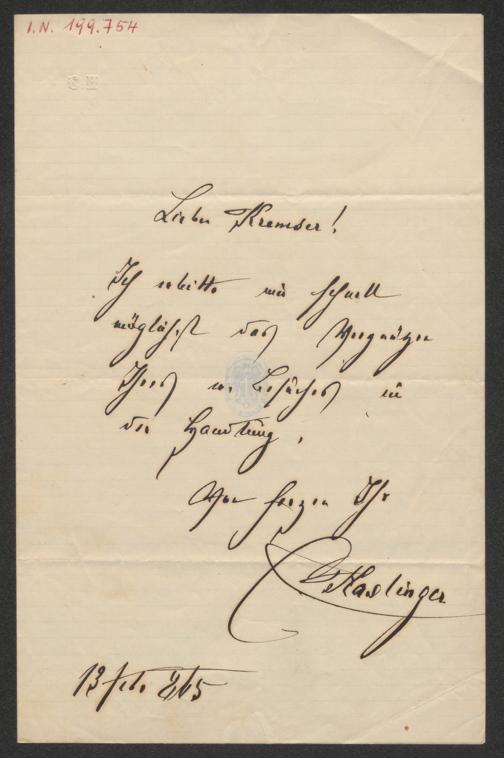 I.N. 199.754
Lieber Kremser!
Ich erbitte mir schnell
möglichst das Vergnügen
Ihres Besuches in
der Handlung,
Von Herzen Ihr
CHaslinger
13 Feb 865